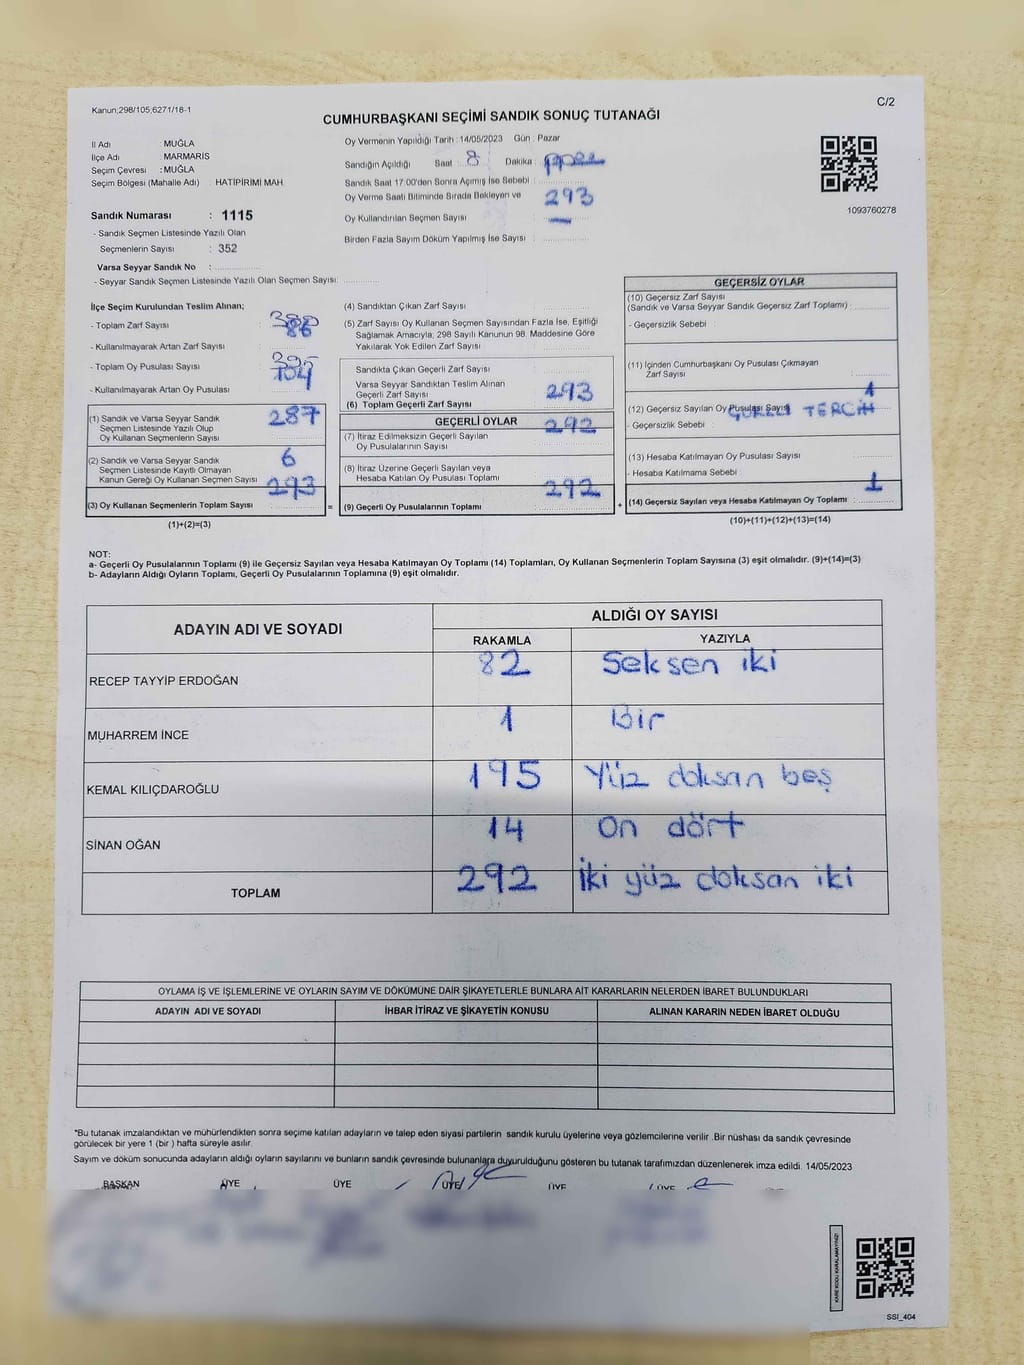 Kanun;298/105;6271/16-1
C/2
CUMHURBAŞKANI SEÇİMİ SANDIK SONUÇ TUTANAĞI
İl Adı : MUĞLA
İlçe Adı : MARMARİS
Seçim Çevresi : MUĞLA
Seçim Bölgesi (Mahalle Adı) : HATİPİRİMİ MAH
Sandık Numarası : 1115
- Sandık Seçmen Listesinde Yazılı Olan
Seçmenlerin Sayısı : 352
Varsa Seyyar Sandık No :
- Seyyar Sandık Seçmen Listesinde Yazılı Olan Seçmen Sayısı:
Oy Vermenin Yapıldığı Tarih : 14/05/2023 Gün : Pazar
Sandığın Açıldığı Saat : 8 Dakika :
Sandık Saat 17:00'den Sonra Açılmış İse Sebebi :
Oy Verme Saati Bitiminde Sırada Bekleyen ve 293
Oy Kullandırılan Seçmen Sayısı :
Birden Fazla Sayım Döküm Yapılmış İse Sayısı :
1093760278
İlçe Seçim Kurulundan Teslim Alınan;
- Toplam Zarf Sayısı : 380
- Kullanılmayarak Artan Zarf Sayısı : 86
- Toplam Oy Pusulası Sayısı : 395
- Kullanılmayarak Artan Oy Pusulası : 104
(1) Sandık ve Varsa Seyyar Sandık 287
Seçmen Listesinde Yazılı Olup
Oy Kullanan Seçmenlerin Sayısı
(2) Sandık ve Varsa Seyyar Sandık 6
Seçmen Listesinde Kayıtlı Olmayan
Kanun Gereği Oy Kullanan Seçmen Sayısı
(3) Oy Kullanan Seçmenlerin Toplam Sayısı 293 =
(1)+(2)=(3)
(4) Sandıktan Çıkan Zarf Sayısı
(5) Zarf Sayısı Oy Kullanan Seçmen Sayısından Fazla İse, Eşitliği
Sağlamak Amacıyla, 298 Sayılı Kanunun 98. Maddesine Göre
Yakılarak Yok Edilen Zarf Sayısı
Sandıkta Çıkan Geçerli Zarf Sayısı
Varsa Seyyar Sandıktan Teslim Alınan
Geçerli Zarf Sayısı
(6) Toplam Geçerli Zarf Sayısı 293
GEÇERLİ OYLAR
(7) İtiraz Edilmeksizin Geçerli Sayılan 292
Oy Pusulalarının Sayısı
(8) İtiraz Üzerine Geçerli Sayılan veya
Hesaba Katılan Oy Pusulası Toplamı
(9) Geçerli Oy Pusulalarının Toplamı 292 +
GEÇERSİZ OYLAR
(10) Geçersiz Zarf Sayısı
(Sandık ve Varsa Seyyar Sandık Geçersiz Zarf Toplamı) :
- Geçersizlik Sebebi :
(11) İçinden Cumhurbaşkanı Oy Pusulası Çıkmayan
Zarf Sayısı :
(12) Geçersiz Sayılan Oy Pusulası Sayısı 1
- Geçersizlik Sebebi : TERCİH
(13) Hesaba Katılmayan Oy Pusulası Sayısı :
- Hesaba Katılmama Sebebi :
(14) Geçersiz Sayılan veya Hesaba Katılmayan Oy Toplamı : 1
(10)+(11)+(12)+(13)=(14)
NOT:
a- Geçerli Oy Pusulalarının Toplamı (9) ile Geçersiz Sayılan veya Hesaba Katılmayan Oy Toplamı (14) Toplamları, Oy Kullanan Seçmenlerin Toplam Sayısına (3) eşit olmalıdır. (9)+(14)=(3)
b- Adayların Aldığı Oyların Toplamı, Geçerli Oy Pusulalarının Toplamına (9) eşit olmalıdır.
ADAYIN ADI VE SOYADI
ALDIĞI OY SAYISI
RAKAMLA YAZIYLA
RECEP TAYYİP ERDOĞAN 82 Seksen iki
MUHARREM İNCE 1 Bir
KEMAL KILIÇDAROĞLU 195 Yüz doksan beş
SİNAN OĞAN 14 On dört
TOPLAM 292 İki yüz doksan iki
OYLAMA İŞ VE İŞLEMLERİNE VE OYLARIN SAYIM VE DÖKÜMÜNE DAİR ŞİKAYETLERLE BUNLARA AİT KARARLARIN NELERDEN İBARET BULUNDUKLARI
ADAYIN ADI VE SOYADI İHBAR İTİRAZ VE ŞİKAYETİN KONUSU ALINAN KARARIN NEDEN İBARET OLDUĞU
*Bu tutanak imzalandıktan ve mühürlendikten sonra seçime katılan adayların ve talep eden siyasi partilerin sandık kurulu üyelerine veya gözlemcilerine verilir .Bir nüshası da sandık çevresinde
görülecek bir yere 1 (bir ) hafta süreyle asılır.
Sayım ve döküm sonucunda adayların aldığı oyların sayılarını ve bunların sandık çevresinde bulunanlara duyurulduğunu gösteren bu tutanak tarafımızdan düzenlenerek imza edildi. 14/05/2023
BAŞKAN ÜYE ÜYE ÜYE ÜYE ÜYE
KARE KODU KARALAMAYINIZ!
SSI_404